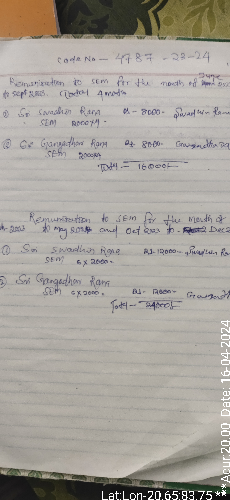 Code No - 4787 - 23-24
Remuneration to SEM for the month of June
to Sept 2023. (Total 4 months
① Sri Swadhin Rana Rs - 8000/- Swadhin Rana
SEM 2000×4
② Sri Gangadhar Rana Rs 8000/-
SEM 2000×4
Total - 16000/-
Remuneration to SEM for the month of
2023 to may and Oct 2023 to Dec 2
① Sri Swadhin Rana Rs 12000/- Swadhin Ra
SEM 6×2000/-
② Sri Gangadhar Rana
SEM 6×2000/- Rs - 12000/-
Total - 24000/-
Acur:20.00 Date: 16-04-2024
Lat:Lon-20.65:83.75***